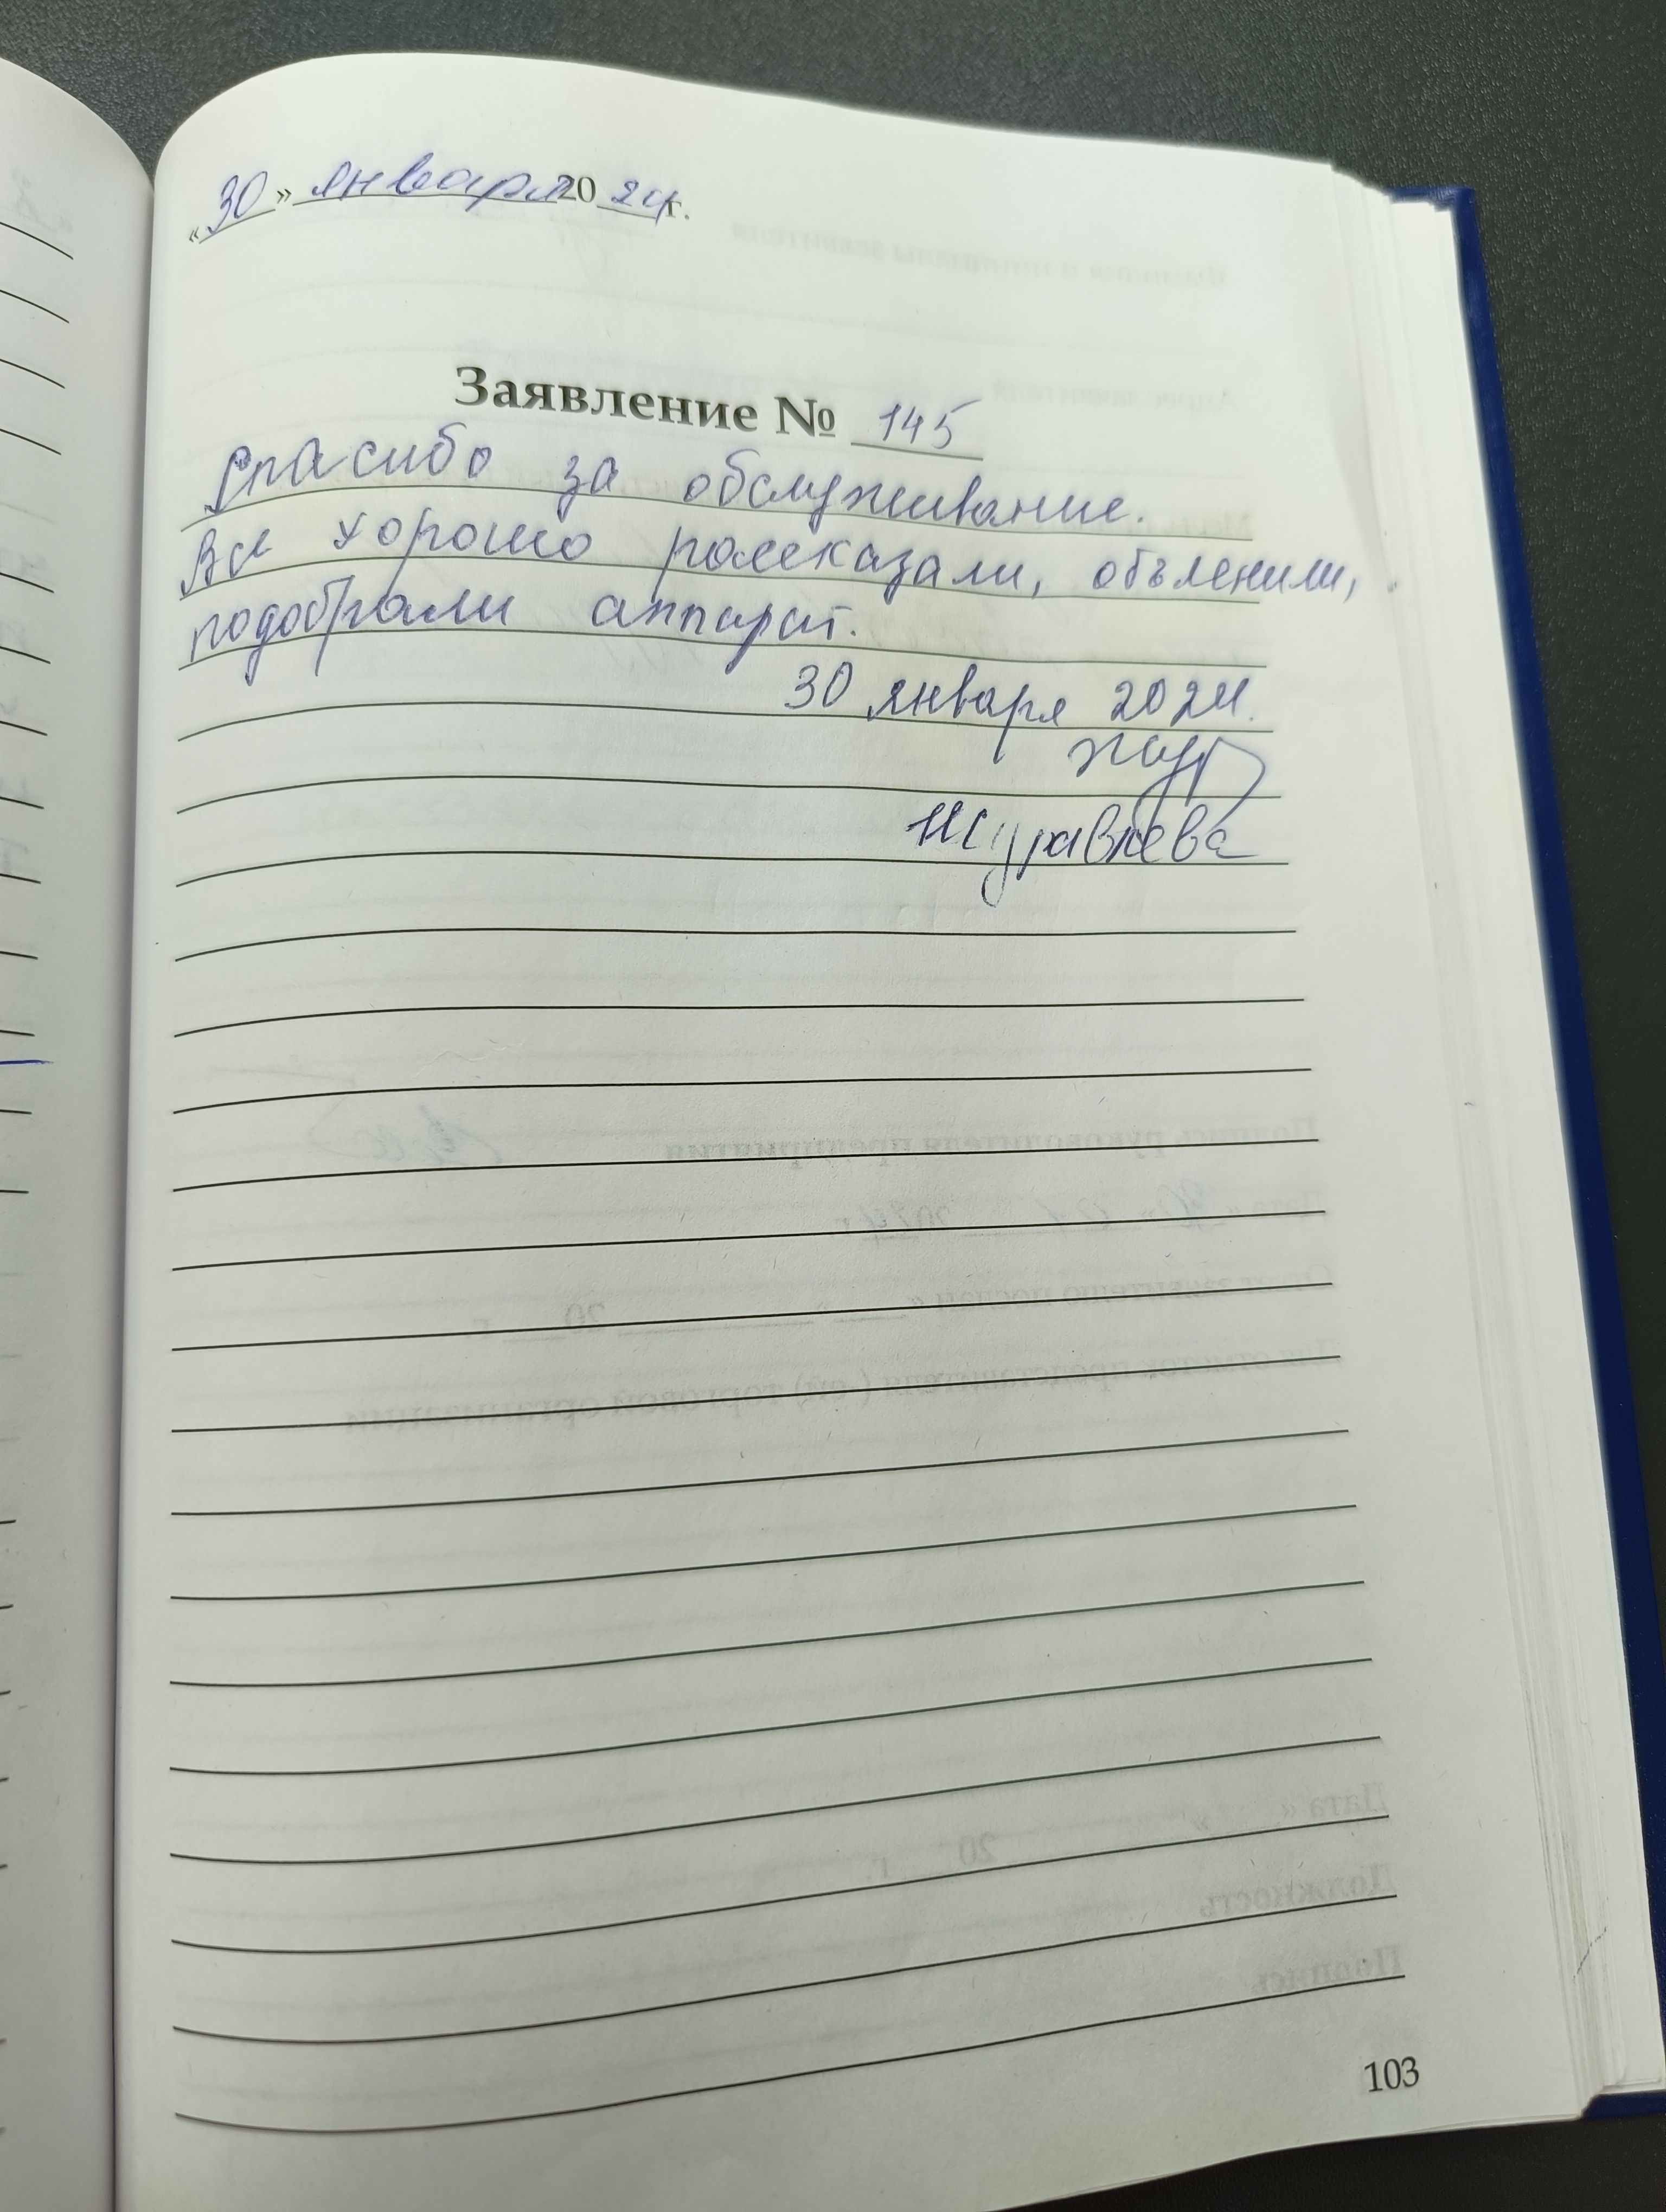 «30» января 2024г.
Заявление № 145
Спасибо за обслуживание.
Все хорошо рассказали, объяснили,
подобрали аппарат.
30 января 2024.
Жур
Журавлева
103